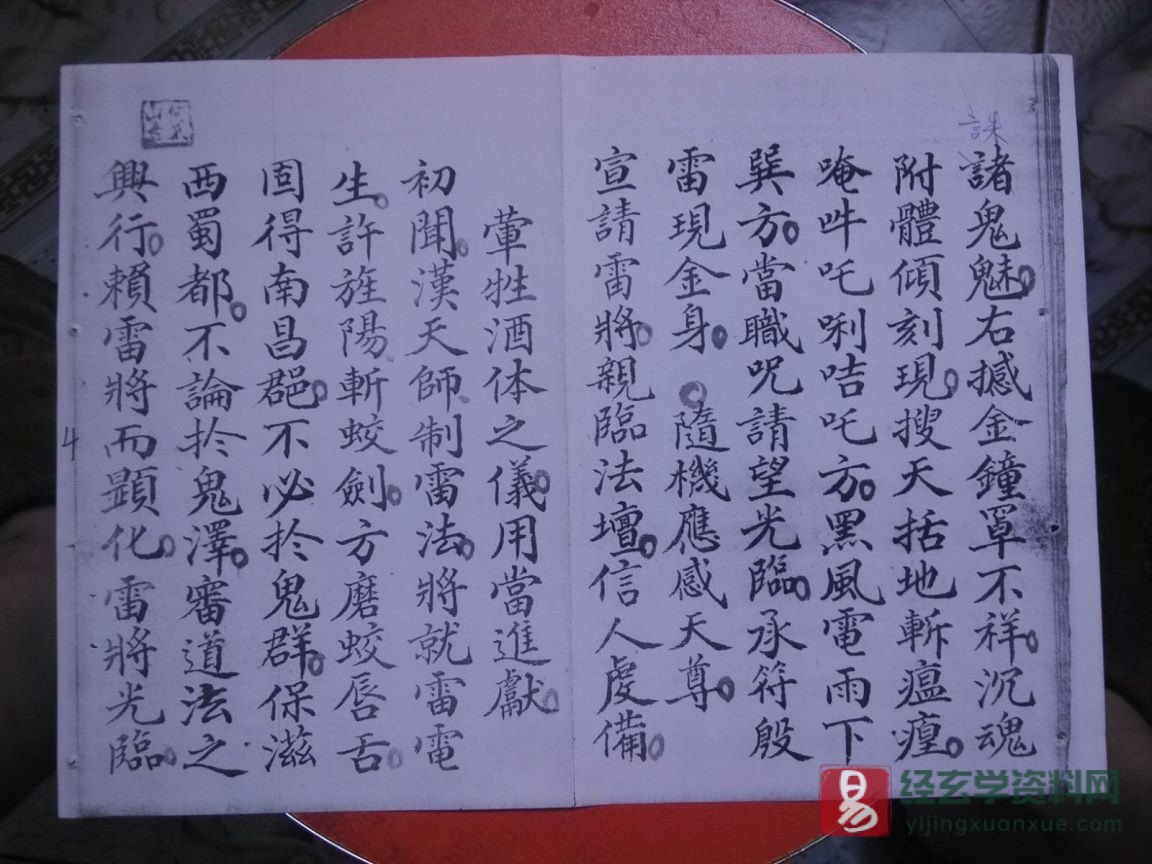 誅
諸鬼魅。右撼金鐘罩不祥。沉魂
附體傾刻現。搜天括地斬瘟㾮。
唵吽吒唎咭吒方。黑風雷雨下
巽方。當職咒請望光臨。承符殷
雷現金身。隨機應感天尊。
宣請雷將。親臨法壇。信人虔備。
葷牲酒体之儀。用當進獻。
初聞。漢天師制雷法。將就雷電
生。許旌陽斬蛟劍。方磨蛟唇舌。
固得南昌郡。不必扵鬼群。保滋
西蜀都。不論扵鬼澤。審道法之
興行。賴雷將而顕化。雷將光臨。
4
易
经玄学资料网
yijingxuanxue.com